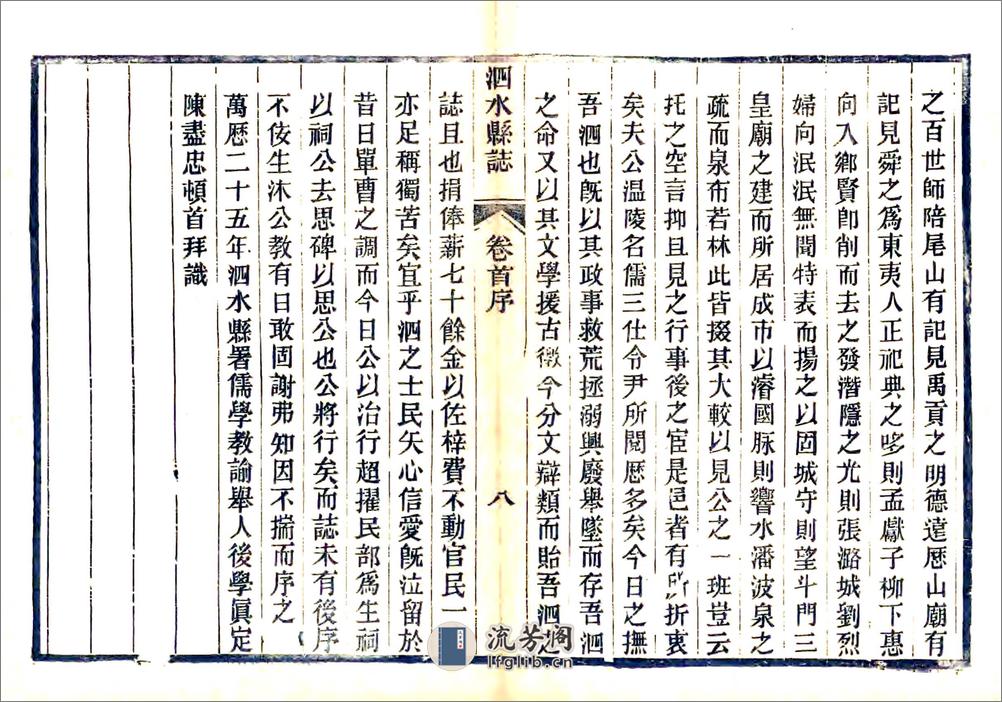 之百世師陪尾山有記見禹貢之明德達歷山廟有
記見舜之為東夷人正祀典之哆則孟獻子柳下惠
向入鄉賢卽削而去之發潛隱之光則張潞城劉烈
婦向泯泯無聞特表而揚之以固城守則望斗門三
皇廟之建而所居成市以濬國脉則響水潘波泉之
疏而泉布若林此皆掇其大較以見公之一班豈云
托之空言抑且見之行事後之宦是邑者有所折衷
矣夫公温陵名儒三仕令尹所閱歷多矣今日之撫
吾泗也旣以其政事救荒拯溺興廢舉墜而存吾泗
之命又以其文學援古徵今分文辯類而貽吾泗之
泗水縣誌
卷首序
八
誌且也捐俸薪七十餘金以佐梓費不動官民一
亦足稱獨苦矣宜乎泗之士民矢心信愛旣泣留於
昔日單曹之調而今日公以治行超擢民部為生祠
以祠公去思碑以思公也公將行矣而誌未有後序
不佞生沐公教有日敢固謝弗知因不揣而序之
萬歷二十五年泗水縣署儒學教諭舉人後學眞定
陳盡忠頓首拜識
流芳阁
lfglib.cn